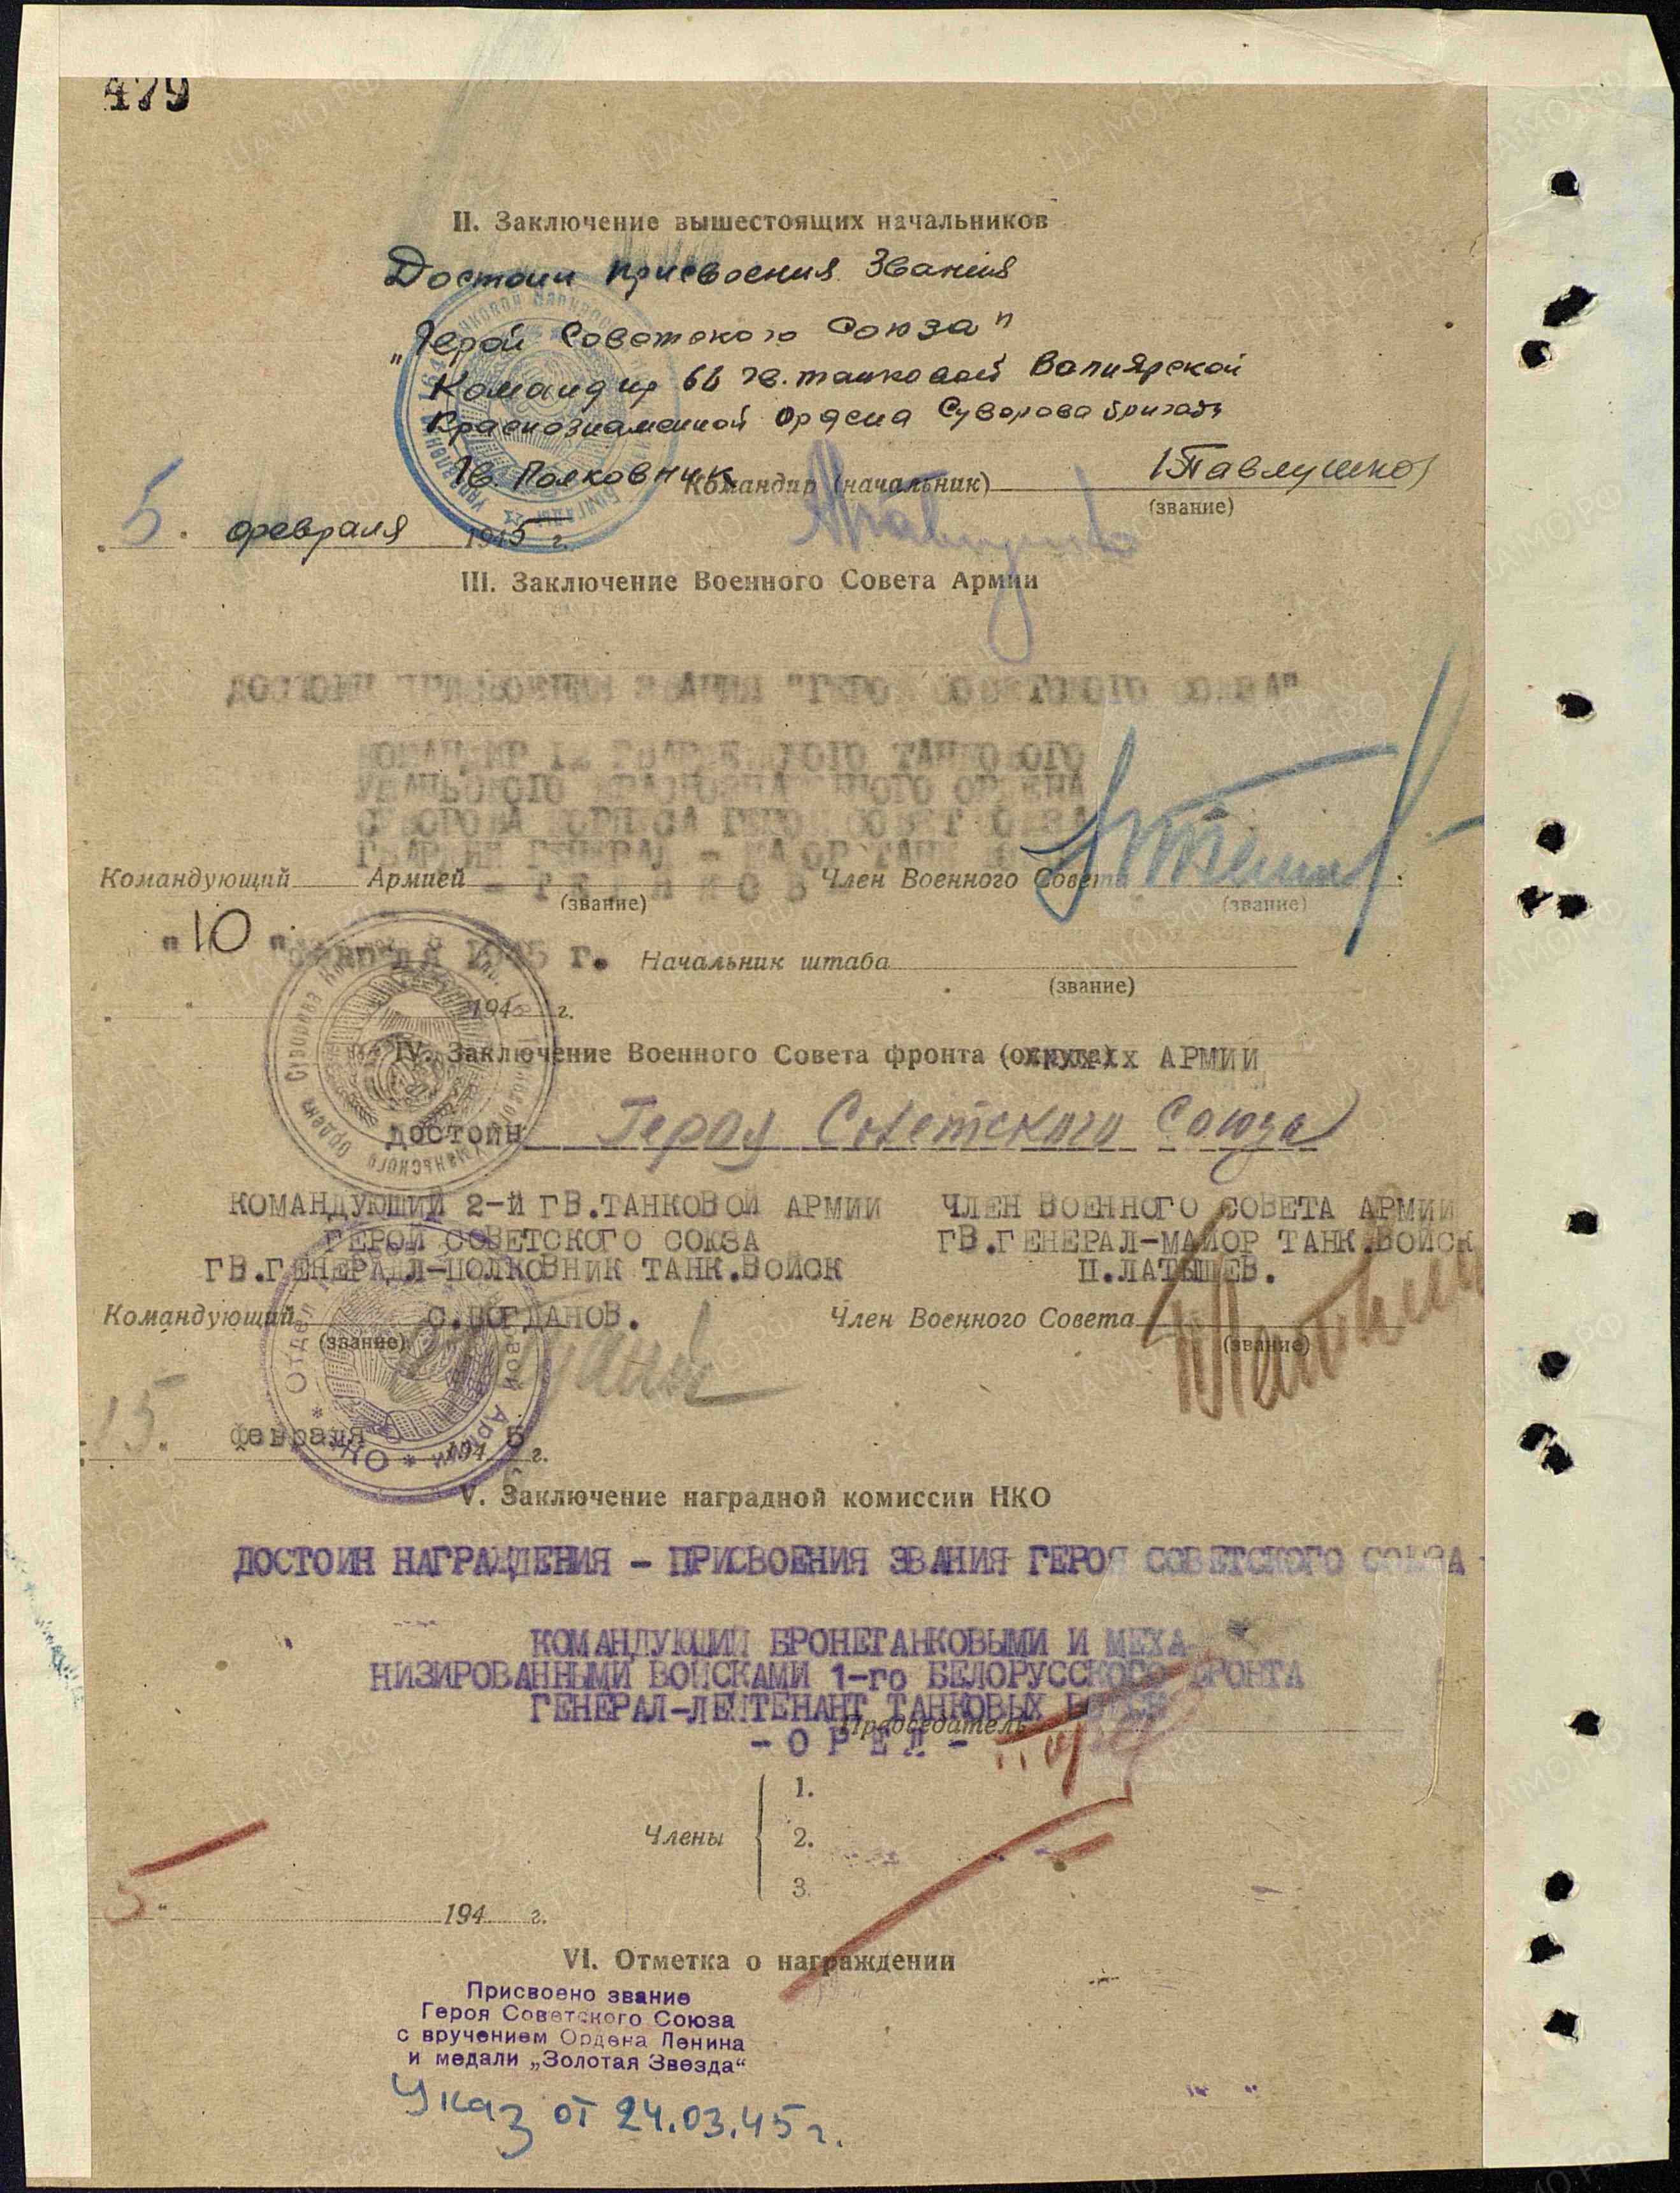 479
II. Заключение вышестоящих начальников
Достоин присвоения Звания
"Герой Советского Союза"
Командир 66 гв. танковой Вапнярской
Краснознаменной Ордена Суворова бригады
Гв. Полковник
Командир (начальник) Павлушко
(звание)
5. февраля 1945 г.
III. Заключение Военного Совета Армии
ДОСТОИН ПРИСВОЕНИЯ ЗВАНИЯ "ГЕРОЙ СОВЕТСКОГО СОЮЗА"
КОМАНДИР 12 ГВАРДЕЙСКОГО ТАНКОВОГО
УМАНЬСКОГО КРАСНОЗНАМЕННОГО ОРДЕНА
СУВОРОВА КОРПУСА ГЕРОЙ СОВЕТ СОЮЗА
ГВАРДИИ ГЕНЕРАЛ - МАЙОР ТАНК ВОЙСК
- ТЕЛЯКОВ
Командующий Армией Член Военного Совета
(звание) (звание)
"10" февраля 1945 г. Начальник штаба
(звание)
194 г.
IV. Заключение Военного Совета фронта (округа) АРМИИ
достоин Героя Советского Союза
КОМАНДУЮЩИЙ 2-й ГВ.ТАНКОВОЙ АРМИИ ЧЛЕН ВОЕННОГО СОВЕТА АРМИИ
ГЕРОЙ СОВЕТСКОГО СОЮЗА ГВ.ГЕНЕРАЛ-МАЙОР ТАНК.ВОЙСК
ГВ.ГЕНЕРАЛ-ПОЛКОВНИК ТАНК.ВОЙСК П.ЛАТЫШЕВ.
Командующий С.БОГДАНОВ. Член Военного Совета
(звание) (звание)
15. февраля 1945 г.
V. Заключение наградной комиссии НКО
ДОСТОИН НАГРАЖДЕНИЯ - ПРИСВОЕНИЯ ЗВАНИЯ ГЕРОЯ СОВЕТСКОГО СОЮЗА
КОМАНДУЮЩИЙ БРОНЕТАНКОВЫМИ И МЕХА-
НИЗИРОВАННЫМИ ВОЙСКАМИ 1-го БЕЛОРУССКОГО ФРОНТА
ГЕНЕРАЛ-ЛЕЙТЕНАНТ ТАНКОВЫХ ВОЙСК
Председатель
- ОРЕЛ -
1.
Члены 2.
3.
194 г.
VI. Отметка о награждении
Присвоено звание
Героя Советского Союза
с вручением Ордена Ленина
и медали „Золотая Звезда“
Указ от 24.03.45 г.